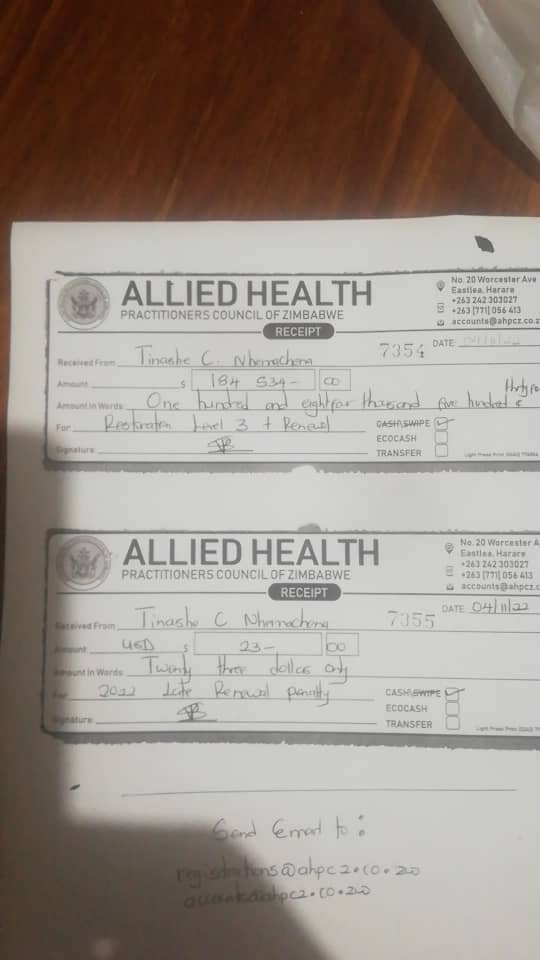 ALLIED HEALTH
PRACTITIONERS COUNCIL OF ZIMBABWE
RECEIPT
No. 20 Worcester Ave
Eastlea, Harare
+263 242 303027
+263 [771] 056 413
accounts@ahpcz.co.z
7354 DATE: 04/11/22
Received From Tinashe C. Nhemachena
Amount $ 184 534- 00
thirty fo
Amount in Words One hundred and eightyfour thousand five hundred &
For Restoration Level 3 + Renewal
Signature
CASH\SWIPE
ECOCASH
TRANSFER
ALLIED HEALTH
PRACTITIONERS COUNCIL OF ZIMBABWE
RECEIPT
No. 20 Worcester A
Eastlea, Harare
+263 242 303027
+263 [771] 056 413
accounts@ahpcz.c
7355 DATE 04/11/22
Received From Tinashe C Nhemachena
Amount USD $ 23- 00
Amount in Words Twenty three dollars only
For 2022 Late Renewal penalty
Signature
CASH\SWIPE
ECOCASH
TRANSFER
Send Email to:
registrations@ahpcz.co.zw